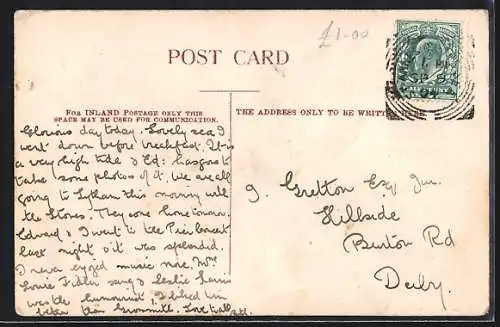 £1-00
POST CARD
FOR INLAND POSTAGE ONLY THIS
SPACE MAY BE USED FOR COMMUNICATION.
THE ADDRESS ONLY TO BE WRITTEN HERE
Glorious day today. Lovely sea I
went down before breakfast. It is
a very high tide & Ed: has gone to
take some photos of it. We are all
going to Lytham this morning with
the Stones. They come home tomorrow.
Edward & I went to the Pier
last night & it was splendid.
I never enjoyed music more. Mme
Louie sang & Leslie Harris
was the humourist, I liked him
better than Grossmith. Love to all
G. Gretton Esq Jun.
Hillside
Burton Rd
Derby